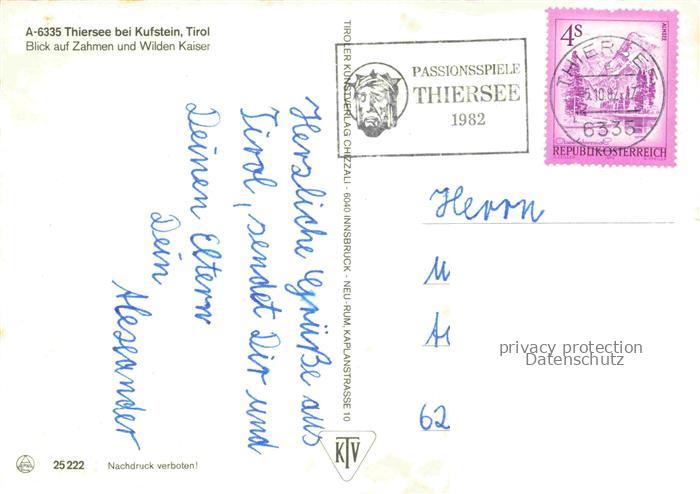 A-6335 Thiersee bei Kufstein, Tirol
Blick auf Zahmen und Wilden Kaiser
Herzliche Grüße aus
Tirol, sendet Dir und
Deinen Eltern
Dein
Alexander
25 222 Nachdruck verboten!
TIROLER KUNSTVERLAG CHIZZALI - 6040 INNSBRUCK - NEU-RUM, KAPLANSTRASSE 10
KTV
PASSIONSSPIELE
THIERSEE
1982
4S
ALMSEE
REPUBLIK ÖSTERREICH
THIERSEE
6335
Herrn
62
privacy protection
Datenschutz